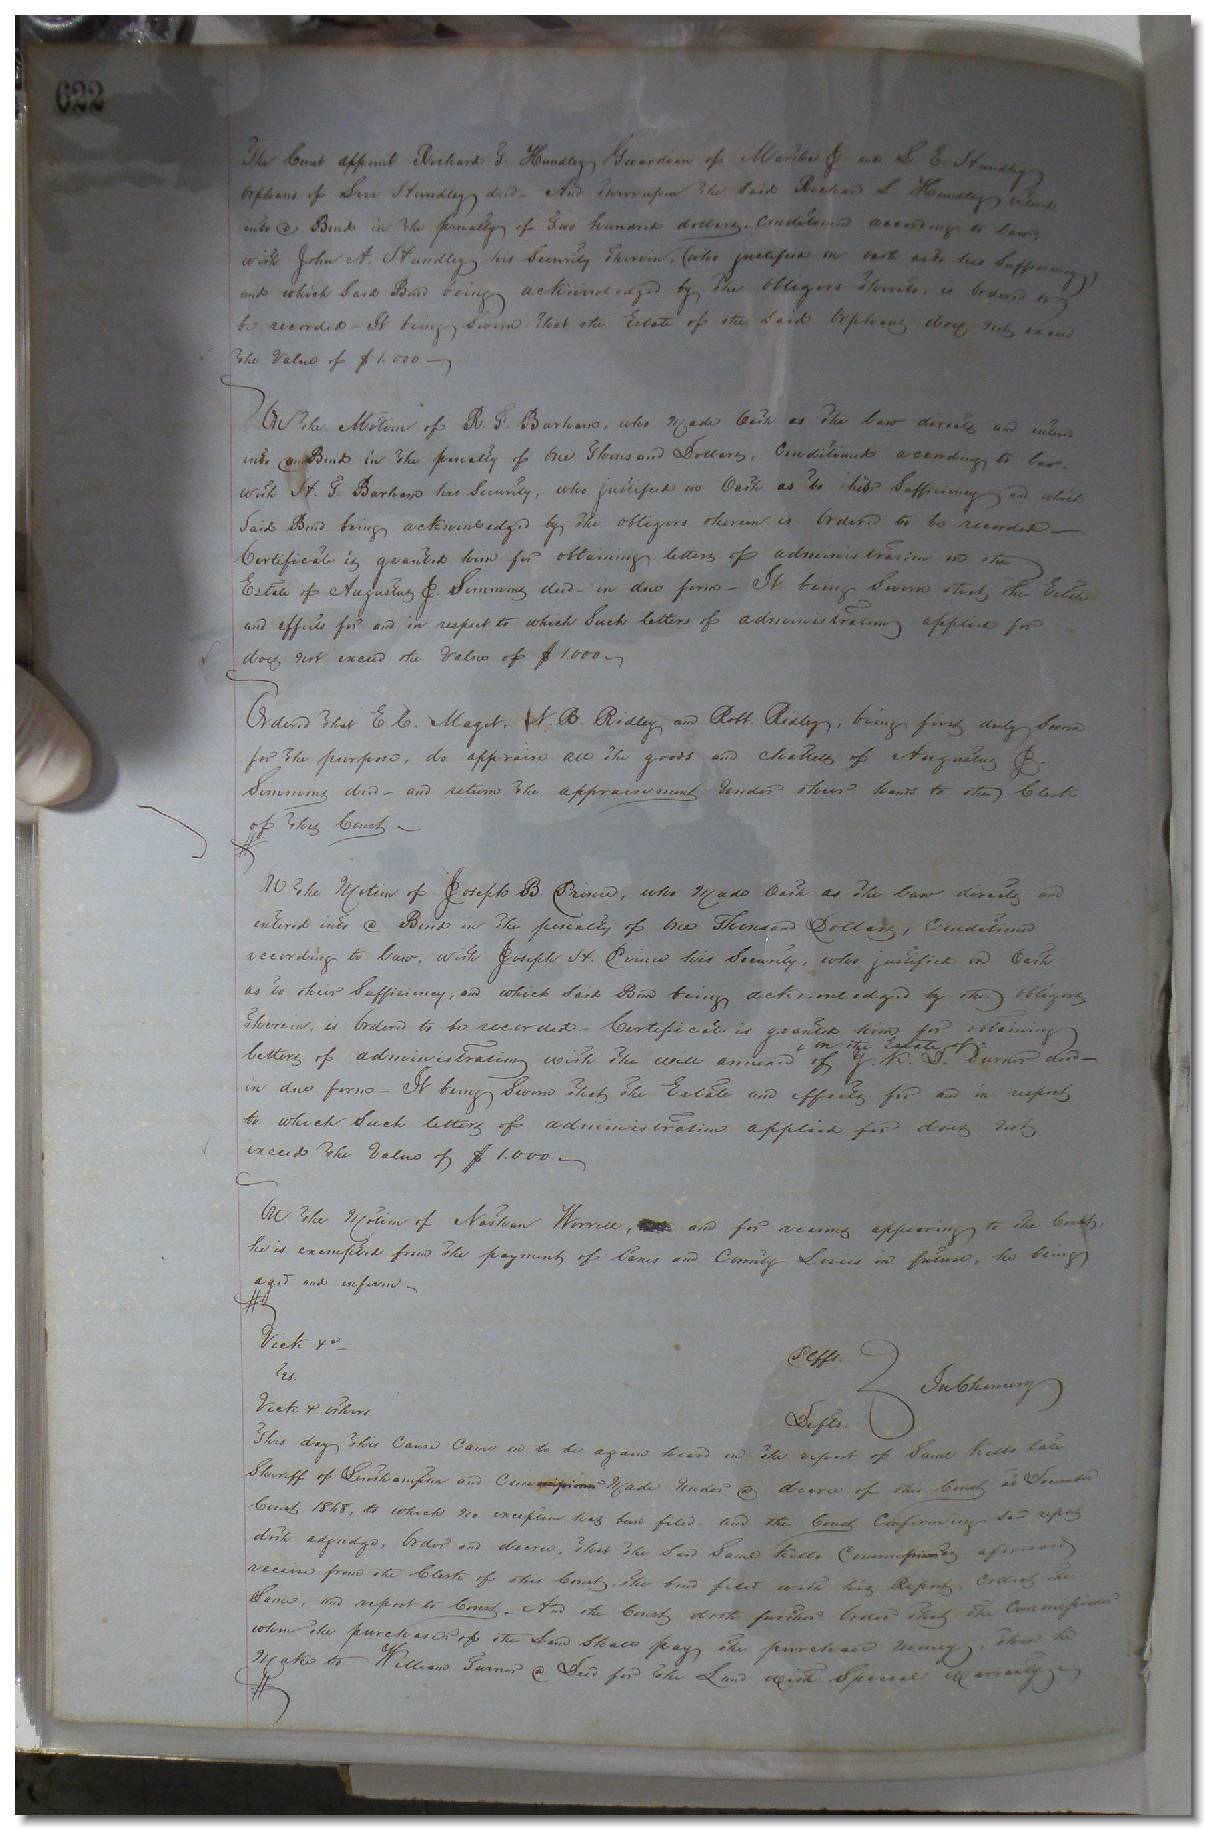 622
The Court appoint Richard G. Handley Guardian of Martha J and L E Standley
orphans of Standley decd - And thereupon the said Richard Handley entered
into a Bond in the penalty of Two hundred dollars, Conditioned according to law
with John A. Standley his Security therein, (who justified on oath as to his Sufficiency)
and which Said Bond being acknowledged by the obligors thereto, is Ordered to
be recorded - It being Sworn that the Estate of the said Orphans does not exceed
the Value of $1.000
On the Motion of R. G. Barham, who made Oath as the law directs and entered
into a Bond in the penalty of One Thousand Dollars, Conditioned according to law
with H. G. Barham his Security, who justified on Oath as to his Sufficiency and which
Said Bond being acknowledged by the obligors therein is Ordered to be recorded -
Certificate is granted him for obtaining letters of administration on the
Estate of Augustus J. Simmons decd - in due form - It being Sworn that the Estate
and effects for and in respect to which Such letters of administration applied for
does not exceed the Value of $1.000
Ordered that E. C. Maget, N. B. Ridley and Robt. Ridley, being first duly Sworn
for the purpose, do appraise all the goods and chattels of Augustus J.
Simmons decd - and return the appraisement under their hands to the Clerk
of this Court -
On the Motion of Joseph B Prince, who Made Oath as the law directs and
entered into a Bond in the penalty of One Thousand Dollars, Conditioned
according to law, with Joseph H. Prince his Security, who justified on Oath
as to their Sufficiency, and which Said Bond being acknowledged by the obligors
therein, is Ordered to be recorded - Certificate is granted him for obtaining
on the Estate of
letters of administration with the will annexed of J. N. D. Turner decd -
in due form - It being Sworn that the Estate and effects for and in respect
to which Such letters of administration applied for does not
exceed the Value of $1.000
On the Motion of Nathan Worrell, and for reasons appearing to the Court,
he is exempted from the payment of Taxes and County Levies in future, he being
aged and infirm -
Vick &c
Plffs.
vs.
In Chancery
Vick & others
Defts.
This day this Cause Came on to be again heard on the report of Saml Kello late
Sheriff of Southampton and Made under a decree of this Court at December
Court 1848, to which no exception has been filed - and the Court Confirming said report
doth adjudge, Order and decree, that the Said Saml Kello Commissioner aforesaid
receive from the Clerk of this Court the bond filed with his Report, Collect the
Same, and report to Court - And the Court doth further Order that the Commissioner
when the purchaser of the Land Shall pay the purchase money, then he
Make to William Turner a Deed for the Land with Special Warranty -